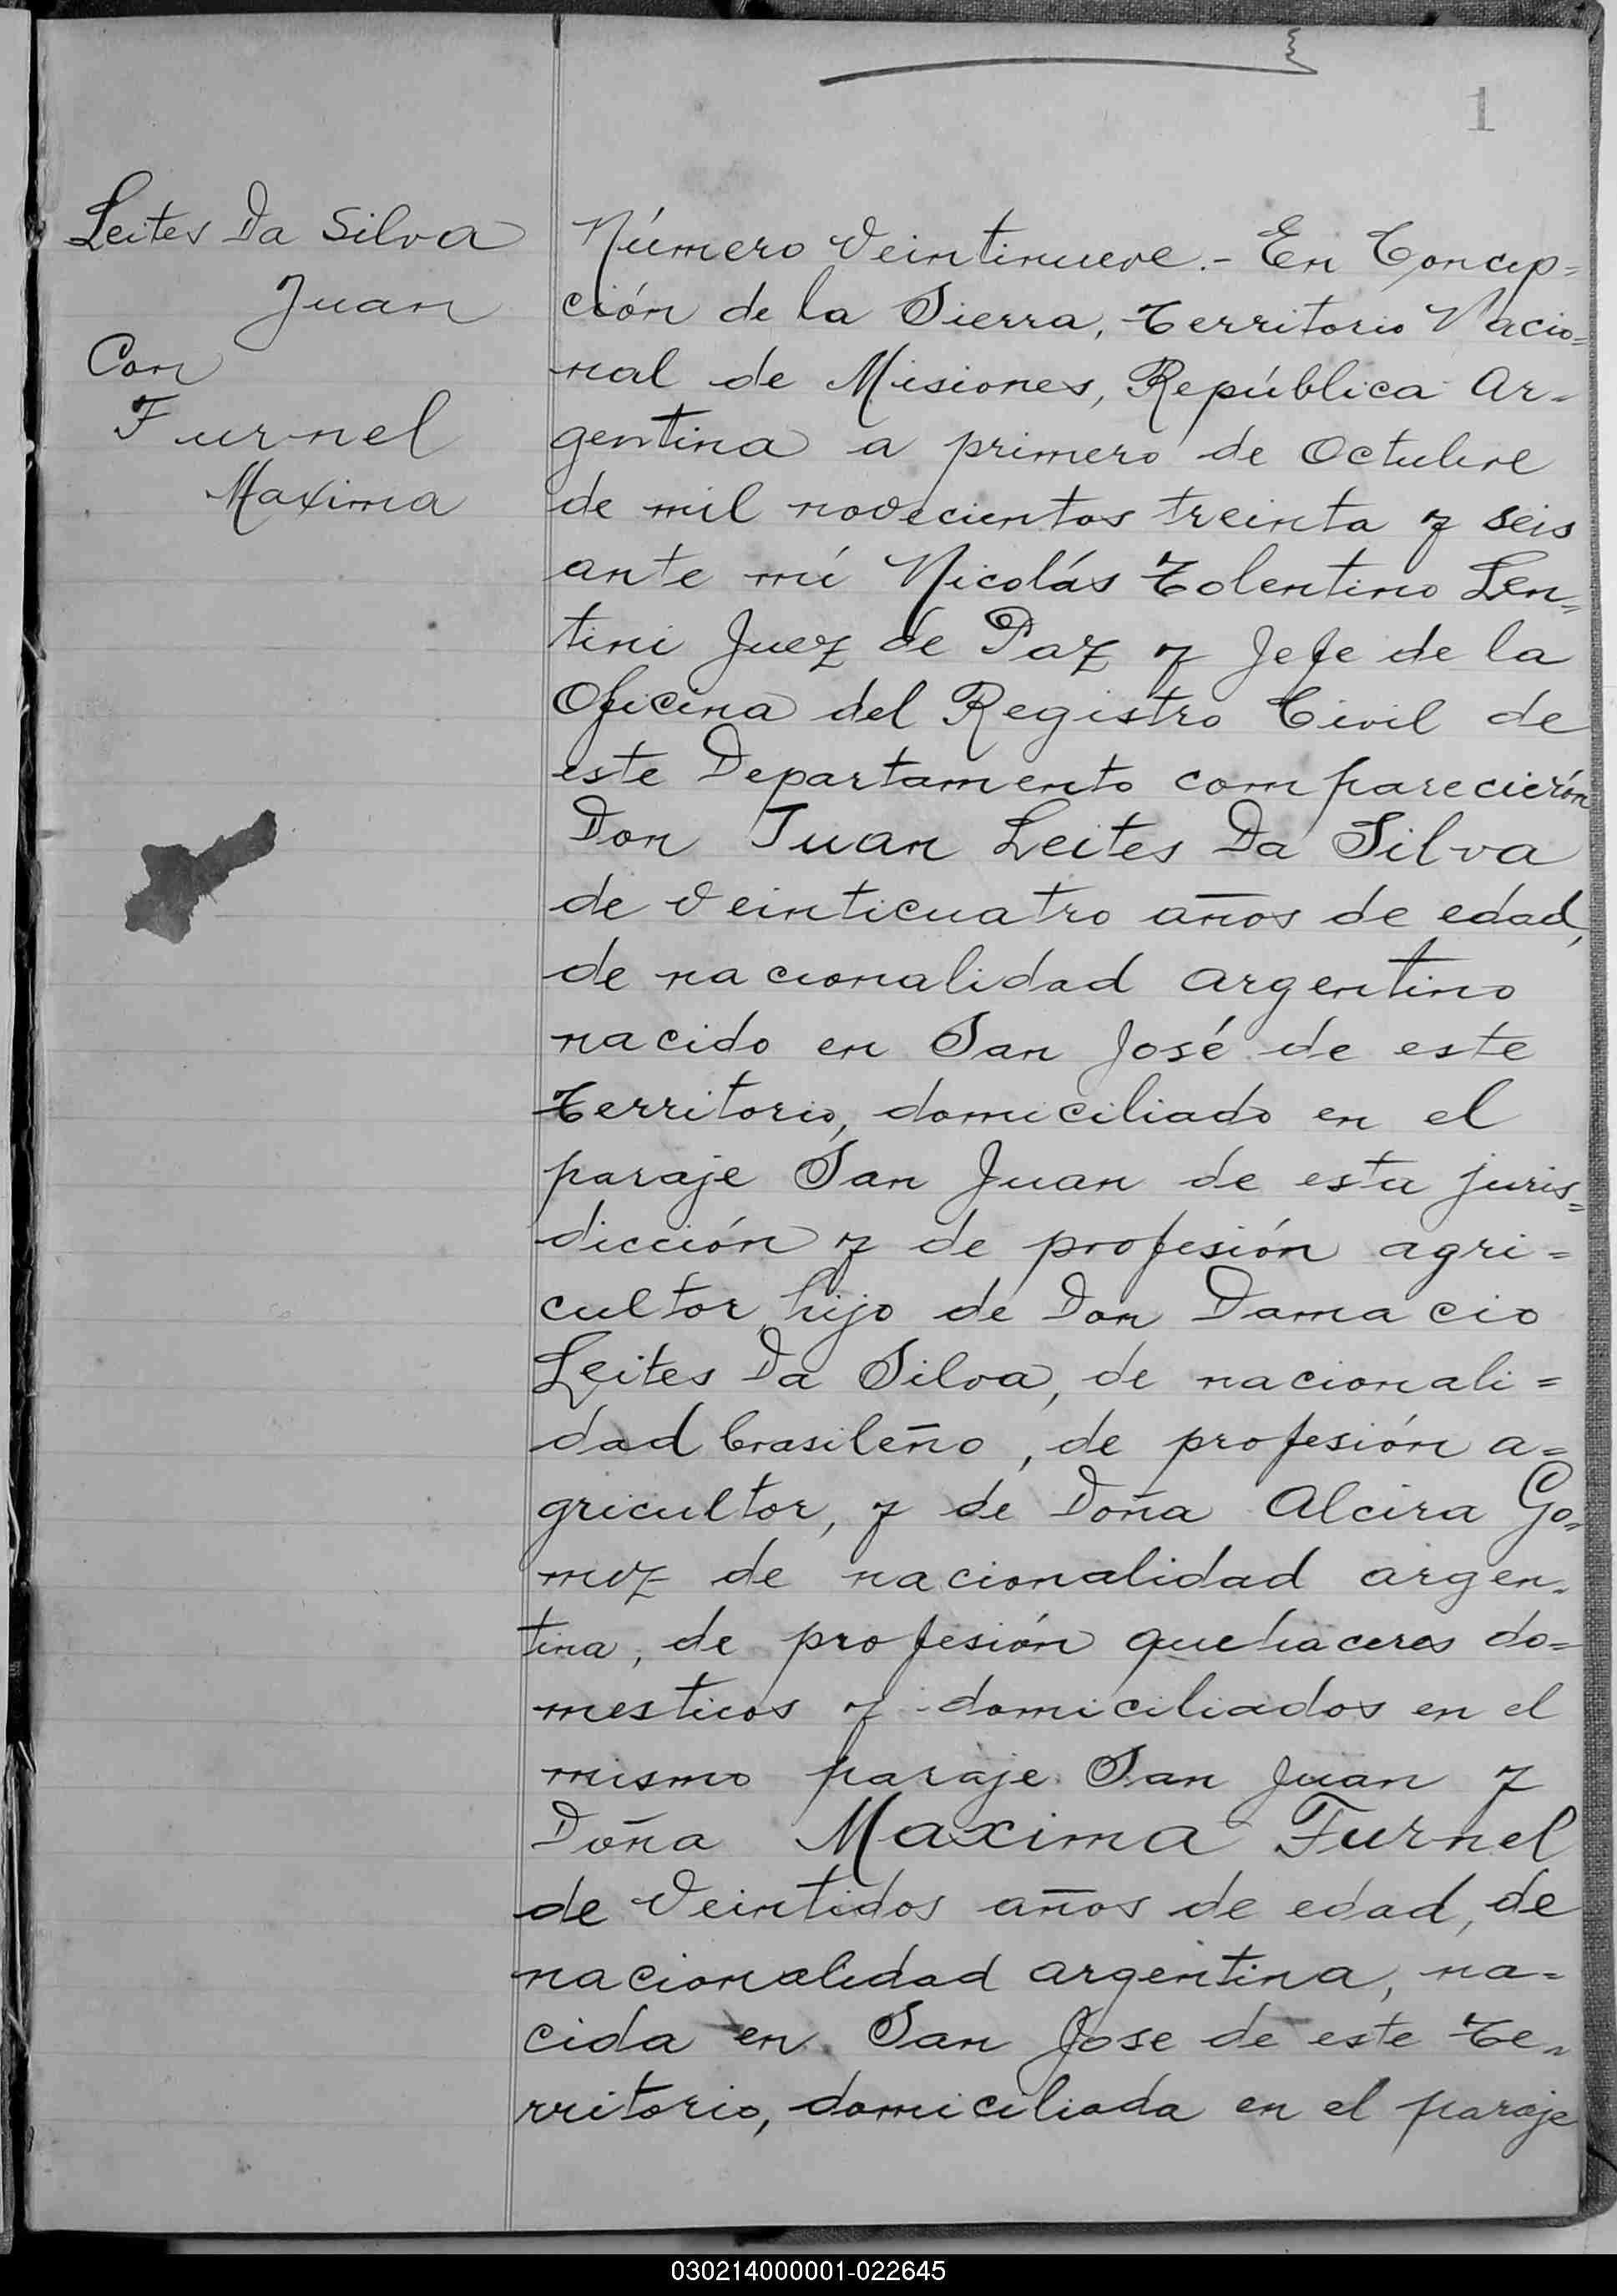 1
Leites Da Silva
Juan
Con
Furnel
Maxima
Número veintinueve.- En Concep=
ción de la Sierra, Territorio Nacio=
nal de Misiones, República Ar=
gentina a primero de Octubre
de mil novecientos treinta y seis
ante mí Nicolás Tolentino Len=
tini Juez de Paz y Jefe de la
Oficina del Registro Civil de
este Departamento comparecierón
Don Juan Leites Da Silva
de veinticuatro años de edad,
de nacionalidad argentino
nacido en San José de este
Territorio, domiciliado en el
paraje San Juan de esta juris=
dicción y de profesión agri=
cultor, hijo de Don Damacio
Leites Da Silva, de nacionali=
dad brasileño, de profesión a=
gricultor, y de Doña Alcira Go=
mez de nacionalidad argen=
tina, de profesión quehaceres do=
mesticos y domiciliados en el
mismo paraje San Juan y
Doña Maxima Furnel
de veintidos años de edad, de
nacionalidad argentina, na=
cida en San Jose de este Te=
rritorio, domiciliada en el paraje
030214000001-022645